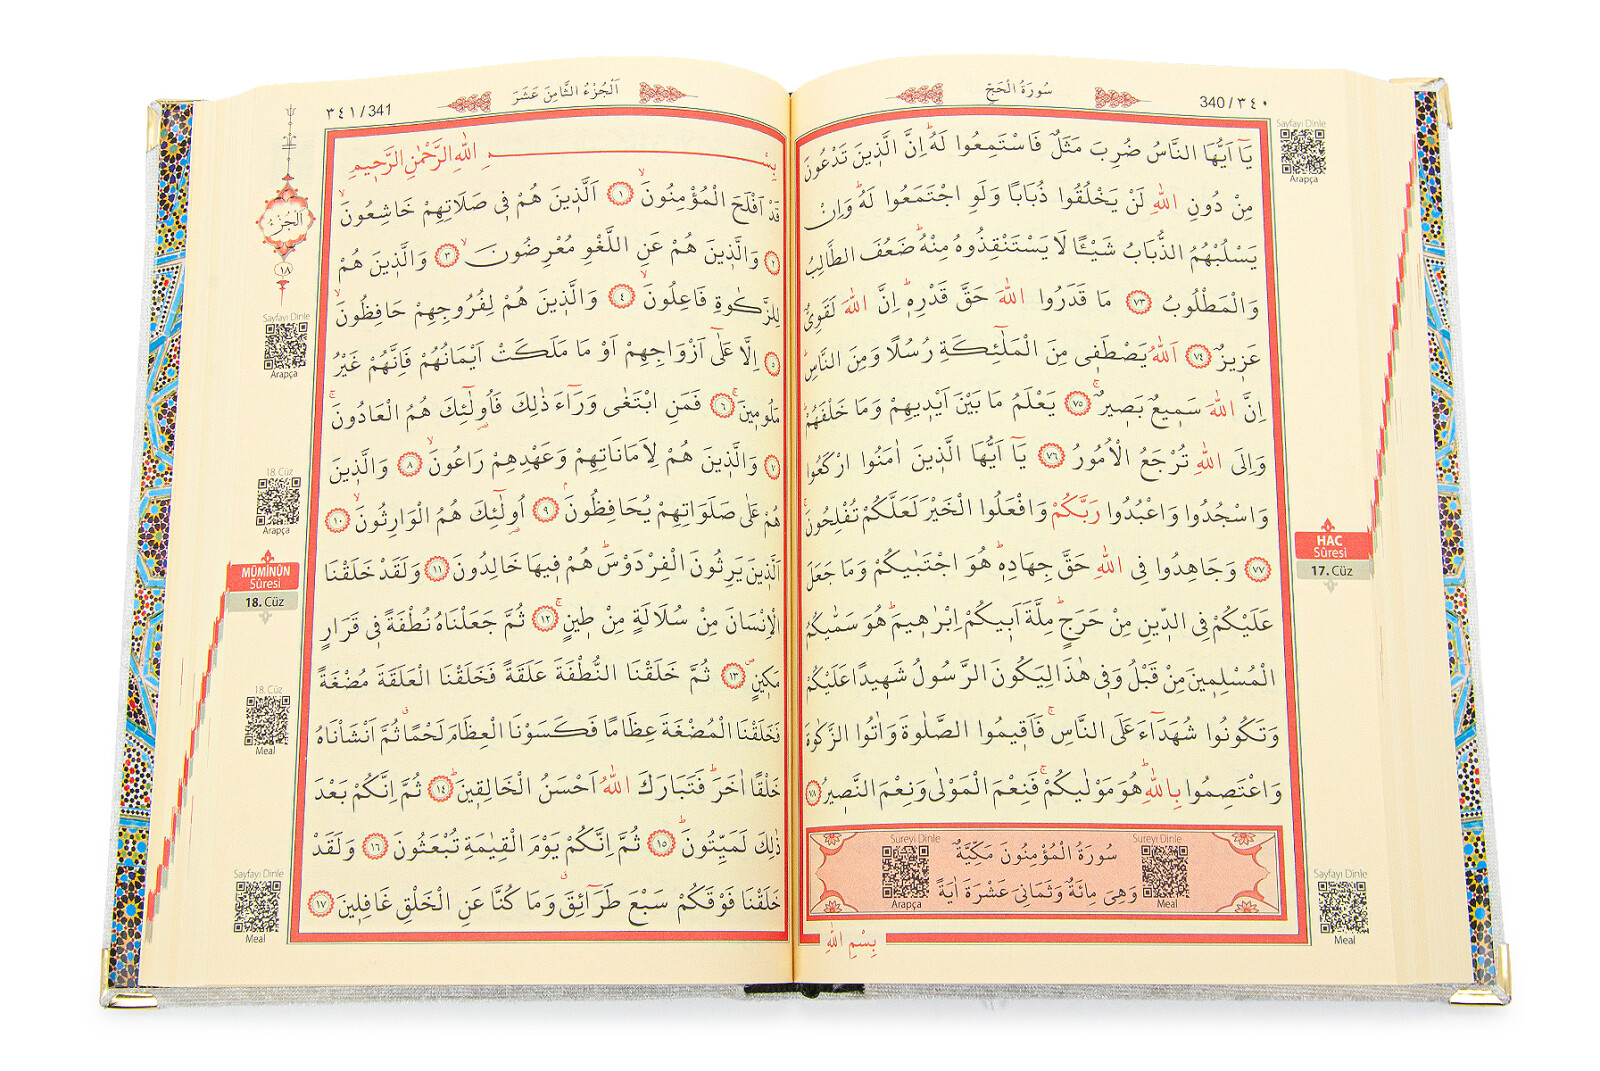 سُورَةُ الْحَجِّ
340/٣٤٠
يَٓا اَيُّهَا النَّاسُ ضُرِبَ مَثَلٌ فَاسْتَمِعُوا لَهُۜ اِنَّ الَّذ۪ينَ تَدْعُونَ
مِنْ دُونِ اللّٰهِ لَنْ يَخْلُقُوا ذُبَابًا وَلَوِ اجْتَمَعُوا لَهُۜ وَاِنْ
يَسْلُبْهُمُ الذُّبَابُ شَيْـًٔا لَا يَسْتَنْقِذُوهُ مِنْهُۜ ضَعُفَ الطَّالِبُ
وَالْمَطْلُوبُ ﴿٧٣﴾ مَا قَدَرُوا اللّٰهَ حَقَّ قَدْرِه۪ۜ اِنَّ اللّٰهَ لَقَوِيٌّ
عَز۪يزٌ ﴿٧٤﴾ اَللّٰهُ يَصْطَف۪ي مِنَ الْمَلٰٓئِكَةِ رُسُلًا وَمِنَ النَّاسِۜ
اِنَّ اللّٰهَ سَم۪يعٌ بَص۪يرٌۚ ﴿٧٥﴾ يَعْلَمُ مَا بَيْنَ اَيْد۪يهِمْ وَمَا خَلْفَهُمْۜ
وَاِلَى اللّٰهِ تُرْجَعُ الْاُمُورُ ﴿٧٦﴾ يَٓا اَيُّهَا الَّذ۪ينَ اٰمَنُوا ارْكَعُوا
وَاسْجُدُوا وَاعْبُدُوا رَبَّكُمْ وَافْعَلُوا الْخَيْرَ لَعَلَّكُمْ تُفْلِحُونَۚ
﴿٧٧﴾ وَجَاهِدُوا فِي اللّٰهِ حَقَّ جِهَادِه۪ۜ هُوَ اجْتَبٰيكُمْ وَمَا جَعَلَ
عَلَيْكُمْ فِي الدّ۪ينِ مِنْ حَرَجٍۜ مِلَّةَ اَب۪يكُمْ اِبْرٰه۪يمَۜ هُوَ سَمّٰيكُمُ
الْمُسْلِم۪ينَ مِنْ قَبْلُ وَف۪ي هٰذَا لِيَكُونَ الرَّسُولُ شَه۪يدًا عَلَيْكُمْ
وَتَكُونُوا شُهَدَٓاءَ عَلَى النَّاسِۚ فَاَق۪يمُوا الصَّلٰوةَ وَاٰتُوا الزَّكٰوةَ
وَاعْتَصِمُوا بِاللّٰهِۜ هُوَ مَوْلٰيكُمْۚ فَنِعْمَ الْمَوْلٰى وَنِعْمَ النَّص۪يرُ ﴿٧٨﴾
Sureyi Dinle
Arapça
سُورَةُ الْمُؤْمِنُونَ مَكِّيَّةٌ
وَهِيَ مِائَةٌ وَثَمَانِيَ عَشْرَةَ اٰيَةً
Sureyi Dinle
Meal
بِسْمِ اللّٰهِ
Sayfayı Dinle
Arapça
HAC
Sûresi
17. Cüz
Sayfayı Dinle
Meal
اَلْجُزْءُ الثَّامِنَ عَشَرَ
٣٤١/341
بِسْمِ اللّٰهِ الرَّحْمٰنِ الرَّح۪يمِ
قَدْ اَفْلَحَ الْمُؤْمِنُونَۙ ﴿١﴾ اَلَّذ۪ينَ هُمْ ف۪ي صَلَاتِهِمْ خَاشِعُونَۙ
﴿٢﴾ وَالَّذ۪ينَ هُمْ عَنِ اللَّغْوِ مُعْرِضُونَۙ ﴿٣﴾ وَالَّذ۪ينَ هُمْ
لِلزَّكٰوةِ فَاعِلُونَۙ ﴿٤﴾ وَالَّذ۪ينَ هُمْ لِفُرُوجِهِمْ حَافِظُونَۙ
﴿٥﴾ اِلَّا عَلٰٓى اَزْوَاجِهِمْ اَوْ مَا مَلَكَتْ اَيْمَانُهُمْ فَاِنَّهُمْ غَيْرُ
مَلُوم۪ينَۚ ﴿٦﴾ فَمَنِ ابْتَغٰى وَرَٓاءَ ذٰلِكَ فَاُو۬لٰٓئِكَ هُمُ الْعَادُونَۚ
﴿٧﴾ وَالَّذ۪ينَ هُمْ لِاَمَانَاتِهِمْ وَعَهْدِهِمْ رَاعُونَۙ ﴿٨﴾ وَالَّذ۪ينَ
هُمْ عَلٰى صَلَوَاتِهِمْ يُحَافِظُونَۢ ﴿٩﴾ اُو۬لٰٓئِكَ هُمُ الْوَارِثُونَۙ ﴿١٠﴾
اَلَّذ۪ينَ يَرِثُونَ الْفِرْدَوْسَۜ هُمْ ف۪يهَا خَالِدُونَ ﴿١١﴾ وَلَقَدْ خَلَقْنَا
الْاِنْسَانَ مِنْ سُلَالَةٍ مِنْ ط۪ينٍۚ ﴿١٢﴾ ثُمَّ جَعَلْنَاهُ نُطْفَةً ف۪ي قَرَارٍ
مَك۪ينٍۖ ﴿١٣﴾ ثُمَّ خَلَقْنَا النُّطْفَةَ عَلَقَةً فَخَلَقْنَا الْعَلَقَةَ مُضْغَةً
فَخَلَقْنَا الْمُضْغَةَ عِظَامًا فَكَسَوْنَا الْعِظَامَ لَحْمًاۗ ثُمَّ اَنْشَأْنَاهُ
خَلْقًا اٰخَرَۜ فَتَبَارَكَ اللّٰهُ اَحْسَنُ الْخَالِق۪ينَۜ ﴿١٤﴾ ثُمَّ اِنَّكُمْ بَعْدَ
ذٰلِكَ لَمَيِّتُونَۜ ﴿١٥﴾ ثُمَّ اِنَّكُمْ يَوْمَ الْقِيٰمَةِ تُبْعَثُونَ ﴿١٦﴾ وَلَقَدْ
خَلَقْنَا فَوْقَكُمْ سَبْعَ طَرَٓائِقَۗ وَمَا كُنَّا عَنِ الْخَلْقِ غَافِل۪ينَ ﴿١٧﴾
اَلْجُزْءُ
١٨
Sayfayı Dinle
Arapça
18. Cüz
Arapça
MÜMİNÛN
Sûresi
18. Cüz
18. Cüz
Meal
Sayfayı Dinle
Meal